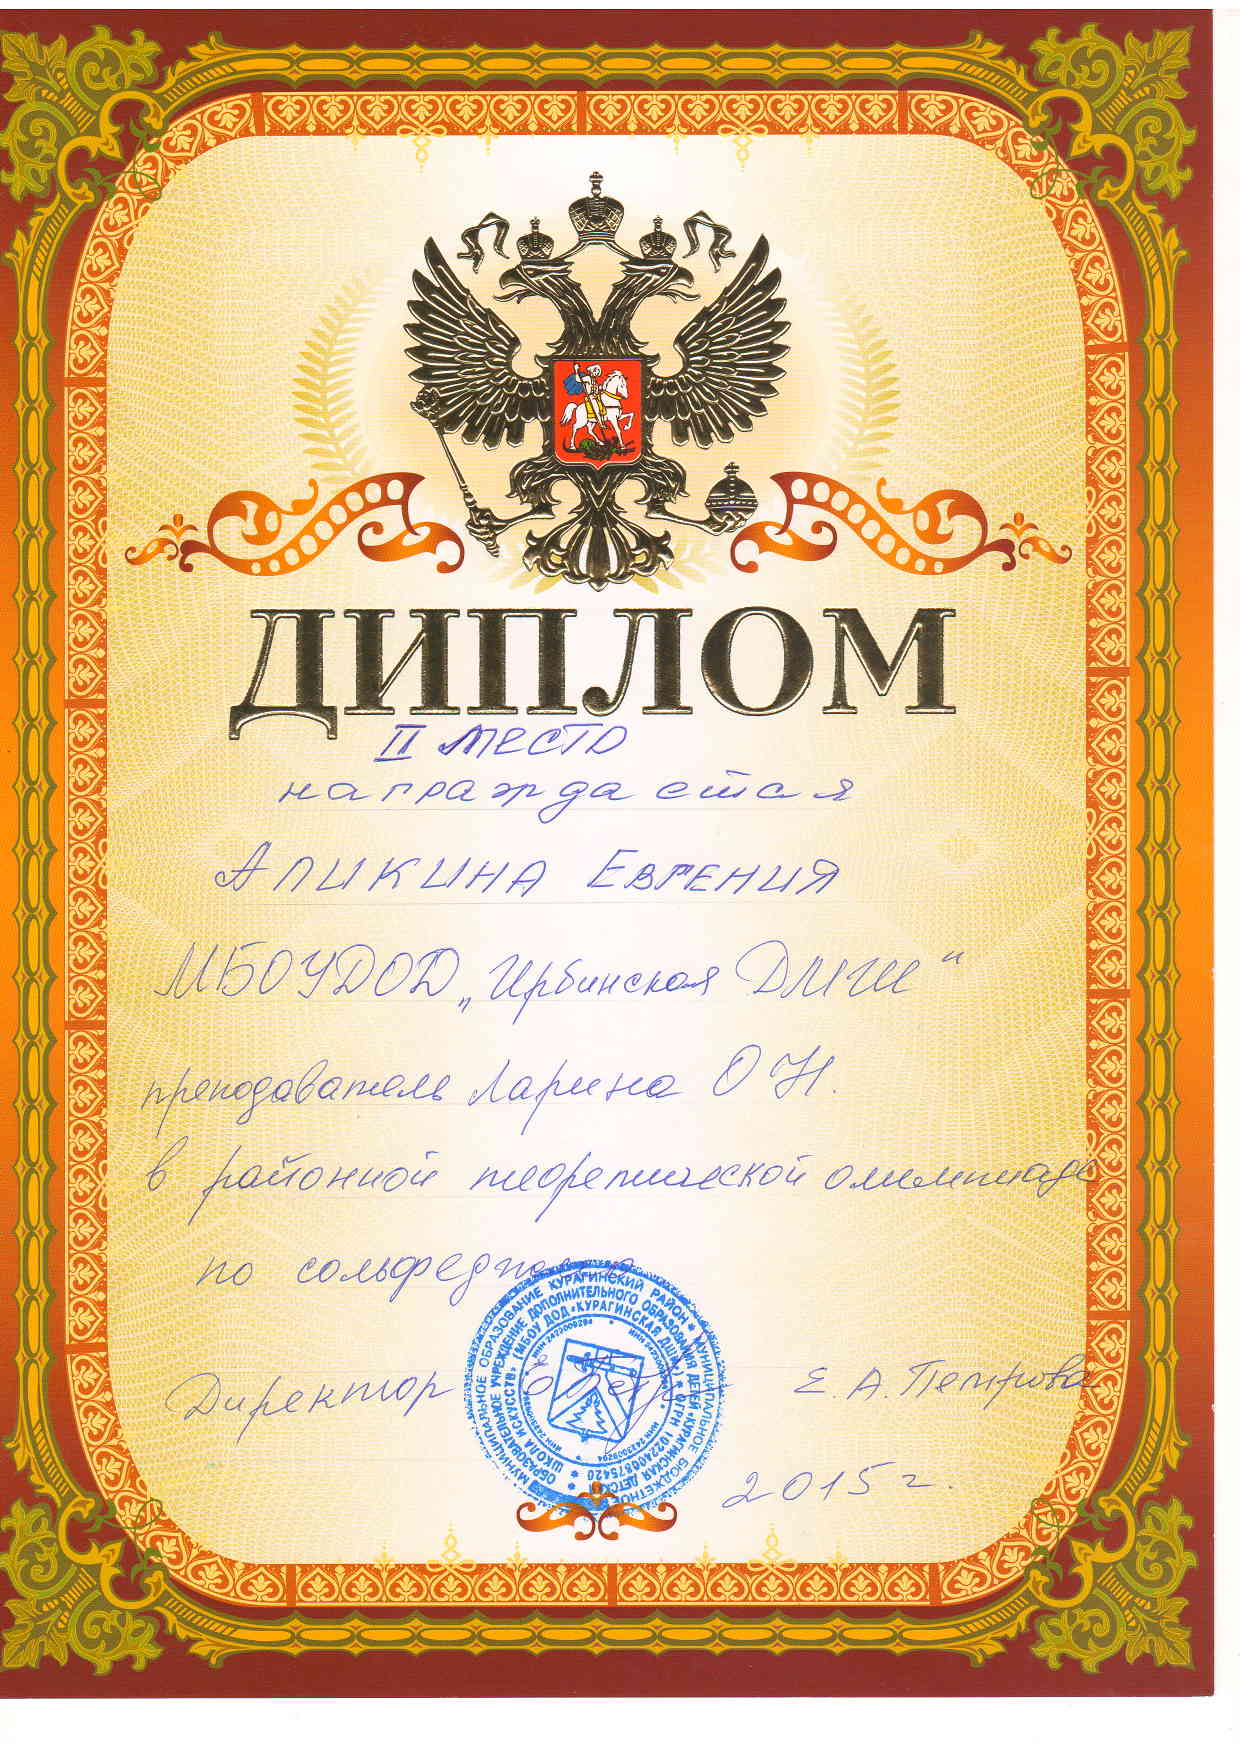 ДИПЛОМ
II МЕСТО
награждается
АЛИКИНА ЕВГЕНИЯ
МБОУДОД „Ирбинская ДМШ“
преподаватель Ларина О Н.
в районной теоретической олимпиаде
по сольфеджио
Директор Е. А. Петрова
2015 г.
МУНИЦИПАЛЬНОЕ ОБРАЗОВАНИЕ КУРАГИНСКИЙ РАЙОН * МУНИЦИПАЛЬНОЕ БЮДЖЕТНОЕ
ОБРАЗОВАТЕЛЬНОЕ УЧРЕЖДЕНИЕ ДОПОЛНИТЕЛЬНОГО ОБРАЗОВАНИЯ ДЕТЕЙ «КУРАГИНСКАЯ ДЕТСКАЯ
ШКОЛА ИСКУССТВ» (МБОУ ДОД «КУРАГИНСКАЯ ДШИ») * ОГРН 1022400875420 *